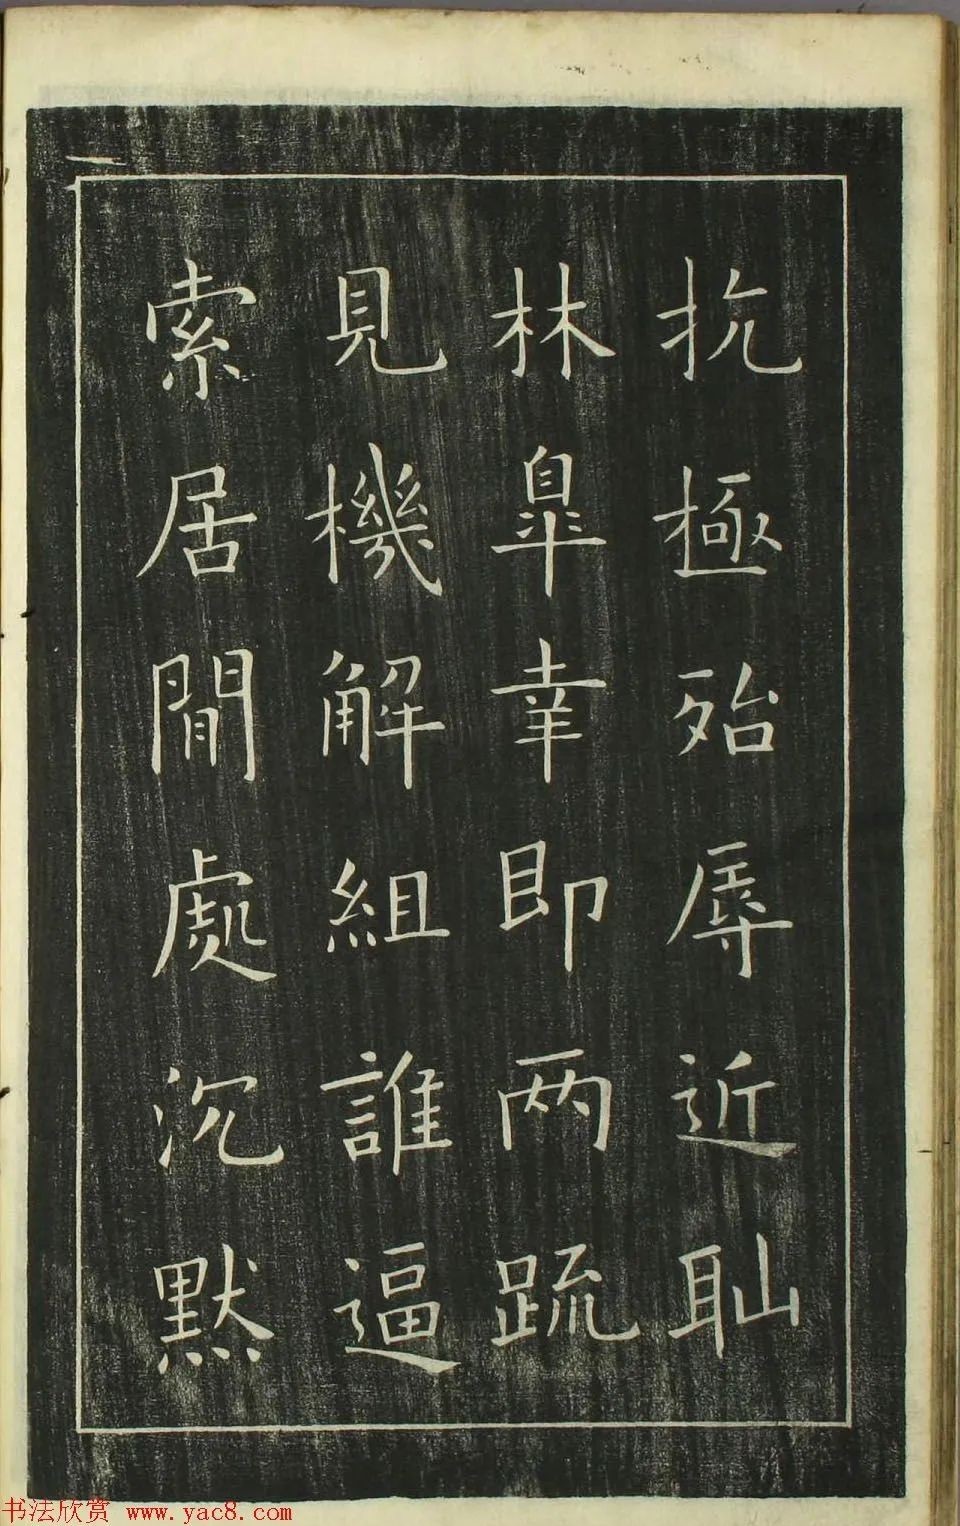 抗極殆辱近耻
林皐幸即两疏
見機解組誰逼
索居閒處沉默
书法欣赏 www.yac8.com